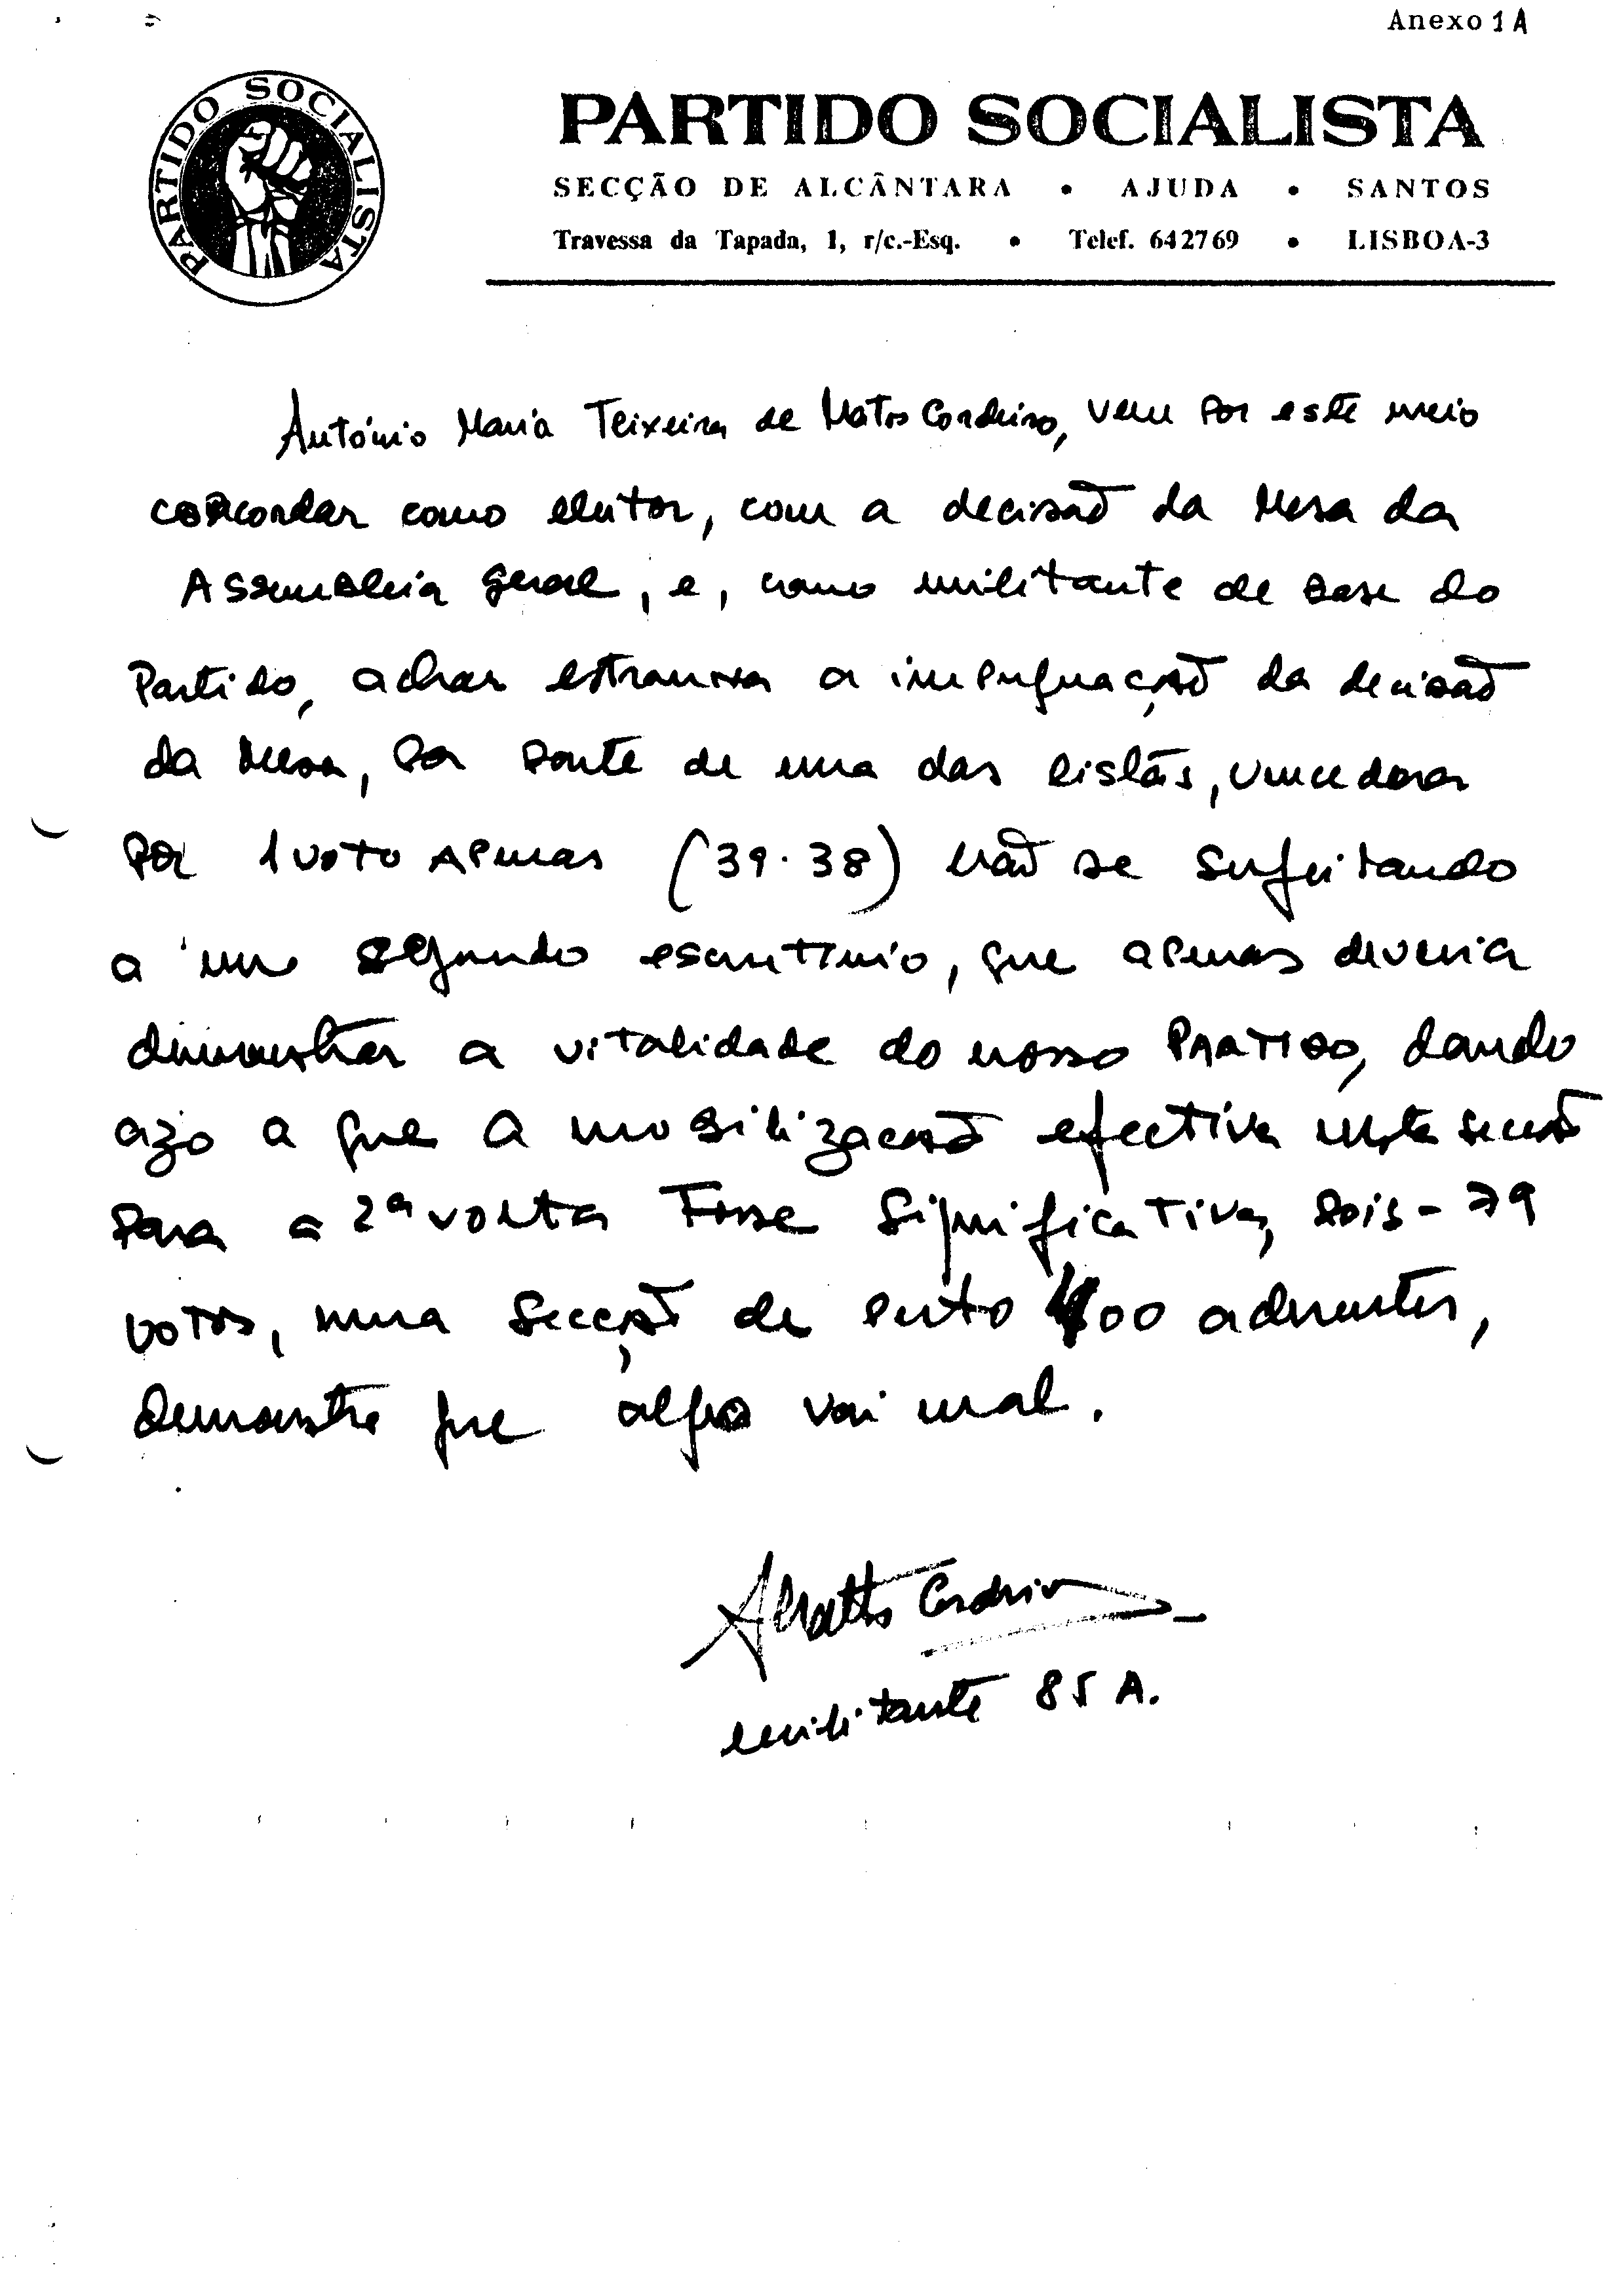 Anexo 1 A
PARTIDO SOCIALISTA
PARTIDO SOCIALISTA
SECÇÃO DE ALCÂNTARA • AJUDA • SANTOS
Travessa da Tapada, 1, r/c.-Esq. • Telef. 642769 • LISBOA-3
António Maria Teixeira de Matos Cordeiro, vem por este meio
concordar como eleitor, com a decisão da Mesa da
Assembleia geral, e, como militante de base do
Partido, achar estranha a impugnação da decisão
da Mesa, por parte de uma das listas, vencedora
por 1 voto apenas (39-38) não se sujeitando
a um segundo escrutínio, que apenas deveria
demonstrar a vitalidade do nosso PARTIDO, dando
azo a que a mobilização efectiva nesta secção
para a 2ª volta fosse significativa, pois - 79
votos, numa Secção de perto 400 aderentes,
demonstra que algo vai mal.
AMatos Cordeiro
militante 85 A.